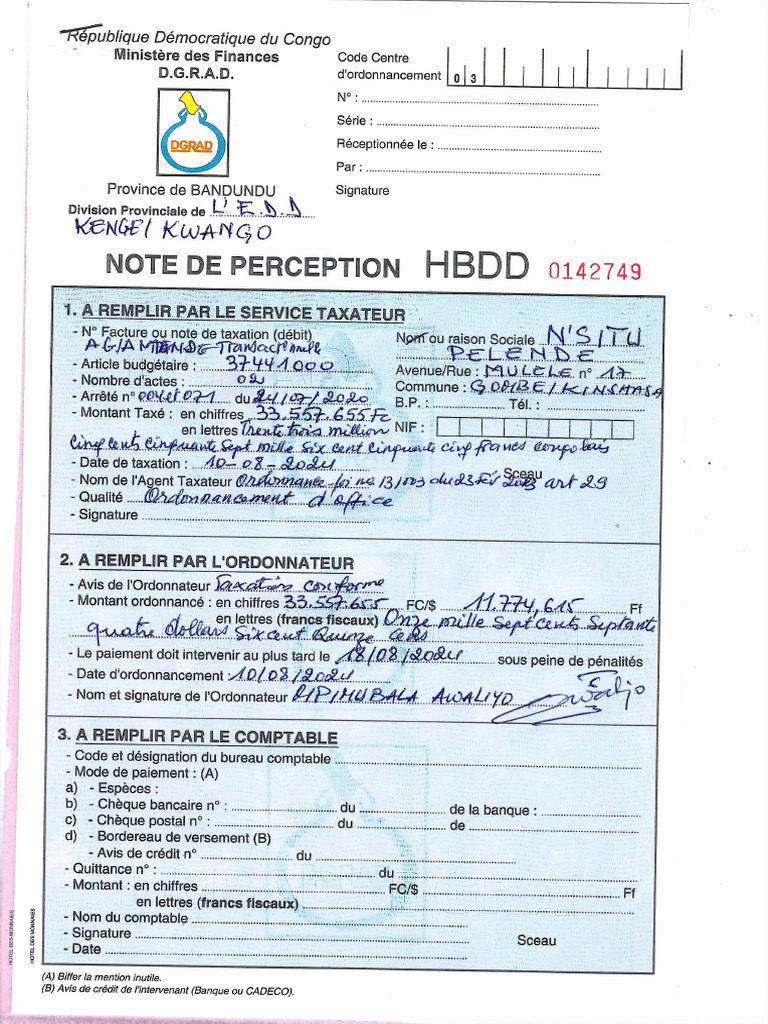 République Démocratique du Congo
Ministère des Finances
D.G.R.A.D.
DGRAD
Province de BANDUNDU
Division Provinciale de L'E.D.D
KENGE/ KWANGO
Code Centre
d'ordonnancement 0 3
N° :
Série :
Réceptionnée le :
Par :
Signature
NOTE DE PERCEPTION HBDD 0142749
1. A REMPLIR PAR LE SERVICE TAXATEUR
- N° Facture ou note de taxation (débit)
AG/AMENDE Transactionnelle
- Article budgétaire : 37441000
- Nombre d'actes : 02
- Arrêté n° 004 et 071 du 24/07/2020
- Montant Taxé : en chiffres 33.557.655 Fc
en lettres Trente trois million
cinq cents cinquante sept mille six cent cinquante cinq francs congolais
- Date de taxation : 10-08-2024
- Nom de l'Agent Taxateur Ordonnance-loi no 13/003 du 23 Fév 2013 art 29
- Qualité Ordonnancement d'office
- Signature
Nom ou raison Sociale N'SITU
PELENDE
Avenue/Rue : MULELE n° 17
Commune : GOMBE/KINSHASA
B.P. : Tél. :
NIF :
Sceau
2. A REMPLIR PAR L'ORDONNATEUR
- Avis de l'Ordonnateur Taxation conforme
- Montant ordonnancé : en chiffres 33.557.655 FC/$ 11.774,615 Ff
en lettres (francs fiscaux) Onze mille Sept cents Septante
quatre dollars Six cent Quinze
- Le paiement doit intervenir au plus tard le 18/08/2024 sous peine de pénalités
- Date d'ordonnancement 10/08/2024
- Nom et signature de l'Ordonnateur PIPIMUBALA AWALIYO
3. A REMPLIR PAR LE COMPTABLE
- Code et désignation du bureau comptable
- Mode de paiement : (A)
a) - Espèces :
b) - Chèque bancaire n° : du de la banque :
c) - Chèque postal n° : du de
d) - Bordereau de versement (B)
- Avis de crédit n° du
- Quittance n° : du
- Montant : en chiffres FC/$ Ff
en lettres (francs fiscaux)
- Nom du comptable
- Signature
- Date
Sceau
(A) Biffer la mention inutile.
(B) Avis de crédit de l'intervenant (Banque ou CADECO).
HOTEL DES MONNAIES
HOTEL DES MONNAIES